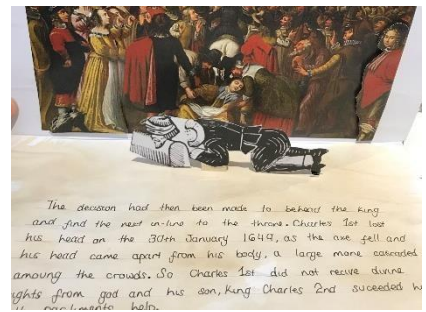 The decision had then been made to behead the king
and find the next in-line to the throne. Charles 1st lost
his head on the 30th January 1649, as the axe fell and
his head came apart from his body, a large mone cascaded
amoung the crowds. So Charles 1st did not recive divine
ights from god and his son, King Charles 2nd suceeded h
parliments help.